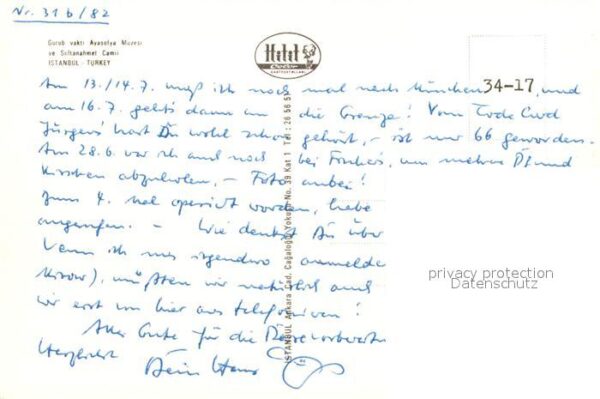 Nr. 31 b/82
Gurub vakti Ayasofya Müzesi
ve Sultanahmet Camii
İSTANBUL - TURKEY
Hitit
Color
KARTPOSTALLARI
34-17
Am 13./14.7. muß ich noch mal nach München, und
am 16.7. geht's dann an die Grenze! Vom Tode Curd
Jürgens hast Du wohl schon gehört, - ist nur 66 geworden.
Am 28.6. war ich auch noch bei, um mehrere Pfund
Kirschen abzuholen, - Foto anbei!
zum 4. Mal operiert worden, habe
angerufen. - Wie denkst Du über
Wenn ich uns irgendwo anmelde
müßten wir natürlich auch
wir erst von hier aus telefonieren!
Alles Gute für die Reisevorbereit
Herzlichst Dein Hans
İSTANBUL Ankara Cad. Cağaloğlu Yokuşu No. 39 Kat 1 Tel : 26 56 51
privacy protection
Datenschutz